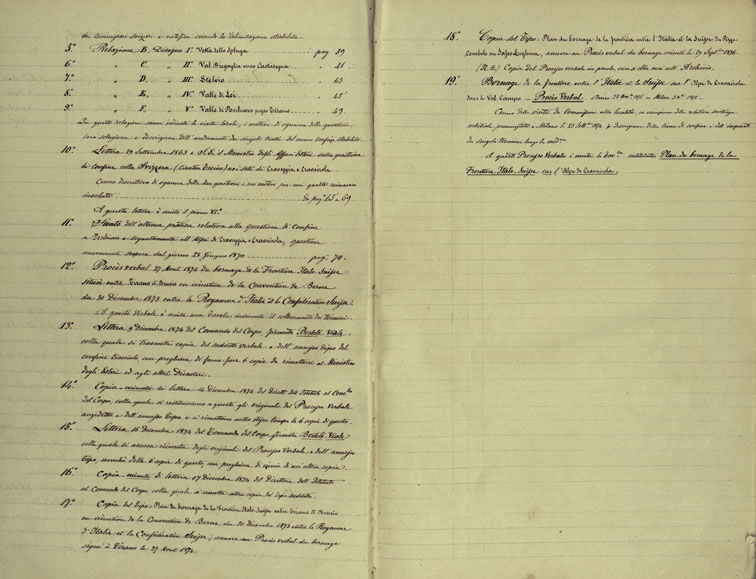 dei Commissari Svizzeri e rettifica secondo la delimitazione stabilita.
5.° Relazione B. Disegno I.° Valle dello Spluga pag. 39
6.° " C. " II.° Val Bregaglia verso Castasegna " 41
7.° " D. " III.° Stelvio " 43
8.° " E. " IV.° Valle di Lei " 45
9.° " F. " V.° Valle di Poschiavo presso Tirano " 49
In queste relazioni sono indicate le visite locali, i motivi di ognuna delle questioni,
loro soluzione e descrizione dell'andamento dei singoli tratti del nuovo confine stabilito.
10.° Lettera 29 Settembre 1863 a S.E. il Ministro degli Affari Esteri sulla questione
di confine colla Svizzera (Cantone Ticino) nei siti di Craveggia e Cravairola
Cenno descrittivo di ognuna delle due questioni, sui motivi per cui queste rimasero
insolute da pag. 65 a 69.
A questa lettera è unito il piano VI.°
11.° Sunto dell'ultima pratica relativa alla questione di Confine
a Perdinero e segnatamente all'Alpi di Craveggia e Cravairola, questione
nuovamente sospesa dal giorno 28 Giugno 1870 pag. 70.
12.° Procès verbal 27 Aout 1874 du bornage de la Frontière Italo-Suisse
située entre Tirano & Brusio en exécution de la Convention de Berne
du 31 Decembre 1873 entre le Royaume d'Italie et la Confédération Suisse
A questo Verbale è unita una Tavola indicante il collocamento dei termini.
13.° Lettera 9 Dicembre 1874 del Comando del Corpo, firmata Bertolè Viale,
colla quale si trasmette copia del suddetto verbale e dell'annesso tipo del
confine tracciato, con preghiera di farne fare 6 copie da rimettere al Ministero
degli Esteri ed agli altri Dicasteri.
14.° Copia-minuta di lettera 14 Dicembre 1874 del Dirett.e dell'Istituto al Com.do
del Corpo, colla quale si restituiscono a questo gli originali del Processo Verbale
anzidetto e dell'annesso Tipo e si rimettono nello stesso tempo le 6 copie di questo.
15.° Lettera 16 Dicembre 1874 del Comando del Corpo firmata Bertolè Viale
colla quale si accusa ricevuta degli originali del Processo Verbale e dell'annesso
tipo, nonchè delle 6 copie di questo, con preghiera di inviar di un'altra copia.
16.° Copia-minuta di lettera 17 Dicembre 1874 del Direttore dell'Istituto
al Comando del Corpo, colla quale si rimette altra copia del tipo suddetto.
17.° Copia del tipo: Plan du bornage de la Frontière Italo-Suisse entre Tirano & Brusio
en exécution de la Convention de Berne du 31 décembre 1873 entre le Royaume
d'Italie et la Confédération Suisse; annexe au Procès verbal du bornage
signé à Tirano le 27 Aout 1874.
18.° Copia del Tipo: Plan du bornage de la frontière entre l'Italie et la Suisse du Pizzo
au Procès verbal du bornage
(N.B.) Copia del Processo verbale in parola, non si ebbe mai nell'Archivio.
19.° Bornage de la frontière entre l'Italie et la Suisse sur l'Alpe de Cravairola
dans le Val Campo - Procès Verbal
Cenno delle visite dei Commissari alla località, in esecuzione della relativa sentenza
arbitrale pronunziata a Milano li 23 Sett.e 1874 e descrizione della linea di confine e dell'impianto
dei singoli termini lungo la med.a
A questo Processo Verbale è unita la tav.a intitolata Plan du bornage de la
Frontière Italo-Suisse sur l'Alpe de Cravairola.